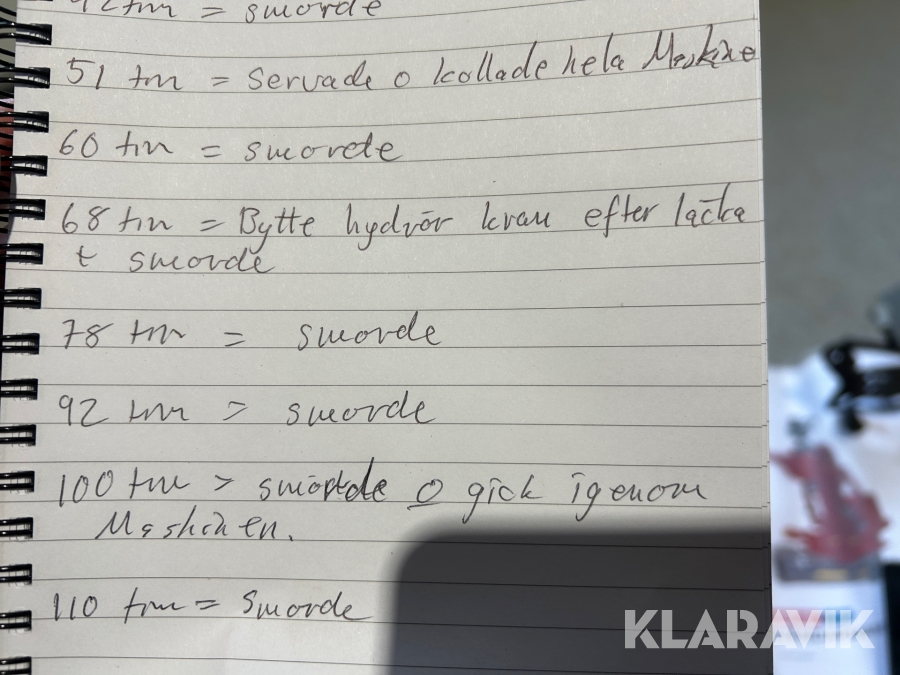 42 tm = smorde
51 tm = servade o kollade hela Maskine
60 tim = smorde
68 tim = Bytte hydrör kran efter läcka
t smorde
78 tm = smorde
92 tm = smorde
100 tm = smörtde o gick igenom
Maskinen.
110 tm = Smorde
KLARAVIK